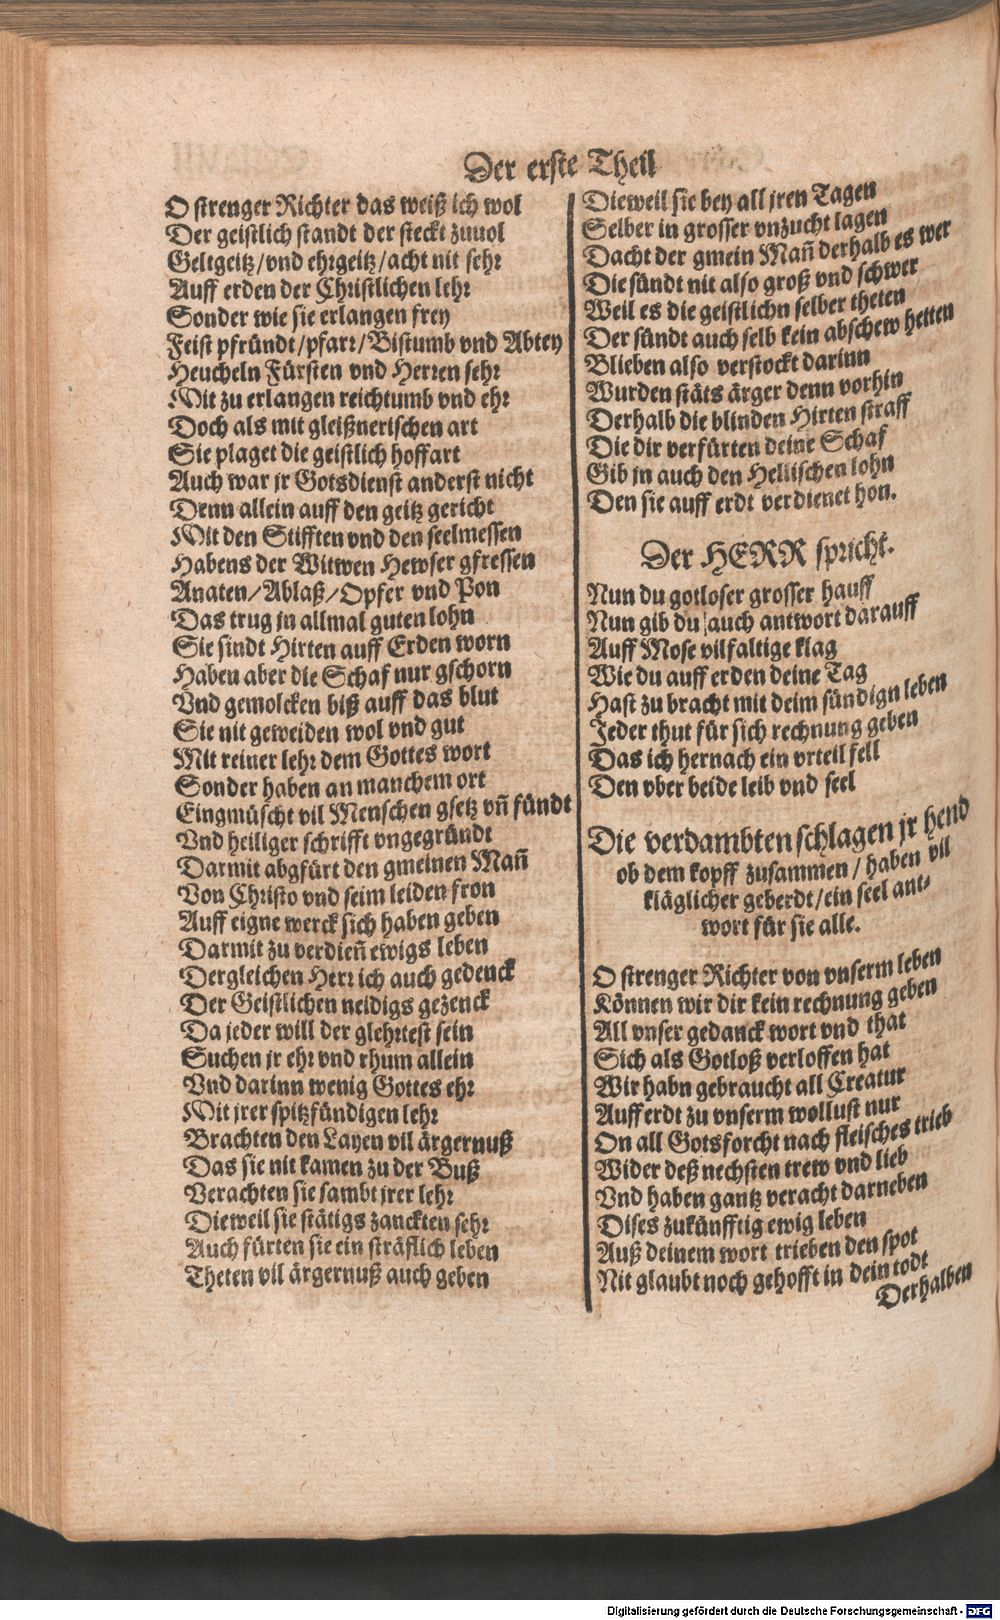 Der erste Theil
O strenger Richter das weiß ich wol
Der geistlich standt der steckt zuuol
Geltgeitz/vnd ehrgeitz/acht nit sehr
Auff erden der Christlichen lehr
Sonder wie sie erlangen frey
Feist pfründt/pfarr/Bistumb vnd Abtey
Heucheln Fürsten vnd Herren sehr
Mit zu erlangen reichtumb vnd ehr
Doch als mit gleißnerischen art
Sie plaget die geistlich hoffart
Auch war jr Gotsdienst anderst nicht
Denn allein auff den geitz gericht
Mit den Stifften vnd den seelmessen
Habens der Witwen Hewser gfressen
Anaten/Ablaß/Opfer vnd Pon
Das trug jn allmal guten lohn
Sie sindt Hirten auff Erden worn
Haben aber die Schaf nur gschorn
Vnd gemolcken biß auff das blut
Sie nit geweiden wol vnd gut
Mit reiner lehr dem Gottes wort
Sonder haben an manchem ort
Eingmüscht vil Menschen gsetz vñ fündt
Vnd heiliger schrifft vngegründt
Darmit abgfürt den gmeinen Mañ
Von Christo vnd seim leiden fron
Auff eigne werck sich haben geben
Darmit zu verdieñ ewigs leben
Dergleichen Herr ich auch gedenck
Der Geistlichen neidigs gezenck
Da jeder will der glehrtest sein
Suchen jr ehr vnd rhum allein
Vnd darinn wenig Gottes ehr
Mit jrer spitzfündigen lehr
Brachten den Layen vil ärgernuß
Das sie nit kamen zu der Buß
Verachten sie sambt jrer lehr
Dieweil sie stätigs zanckten sehr
Auch fürten sie ein sträflich leben
Theten vil ärgernuß auch geben
Dieweil sie bey all jren Tagen
Selber in grosser vnzucht lagen
Dacht der gmein Mañ derhalb es wer
Die sündt nit also groß vnd schwer
Weil es die geistlichn selber theten
Der sündt auch selb kein abschew hetten
Blieben also verstockt darinn
Wurden stäts ärger denn vorhin
Derhalb die blinden Hirten straff
Die dir verfürten deine Schaf
Gib jn auch den Hellischen lohn
Den sie auff erdt verdienet hon.
Der HERR spricht.
Nun du gotloser grosser hauff
Nun gib du auch antwort darauff
Auff Mose vilfaltige klag
Wie du auff erden deine Tag
Hast zu bracht mit deim sündign leben
Jeder thut für sich rechnung geben
Das ich hernach ein vrteil fell
Den vber beide leib vnd seel
Die verdambten schlagen jr hend
ob dem kopff zusammen / haben vil
kläglicher geberdt/ein seel ant-
wort für sie alle.
O strenger Richter von vnserm leben
Können wir dir kein rechnung geben
All vnser gedanck wort vnd that
Sich als Gotloß verloffen hat
Wir habn gebraucht all Creatur
Auff erdt zu vnserm wollust nur
On all Gotsforcht nach fleisches trieb
Wider deß nechsten trew vnd lieb
Vnd haben gantz veracht darneben
Dises zukünfftig ewig leben
Auß deinem wort trieben den spot
Nit glaubt noch gehofft in dein todt
Derhalben
Digitalisierung gefördert durch die Deutsche Forschungsgemeinschaft - DFG